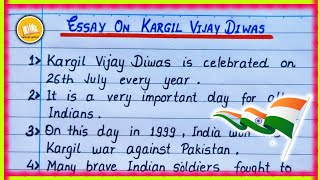 Essay On Kargil Vijay Diwas
1> Kargil Vijay Diwas is celebrated on
26th July every year.
2> It is a very important day for all
Indians.
3> On this day in 1999, India won
Kargil war against Pakistan.
4> Many brave Indian soldiers fought to